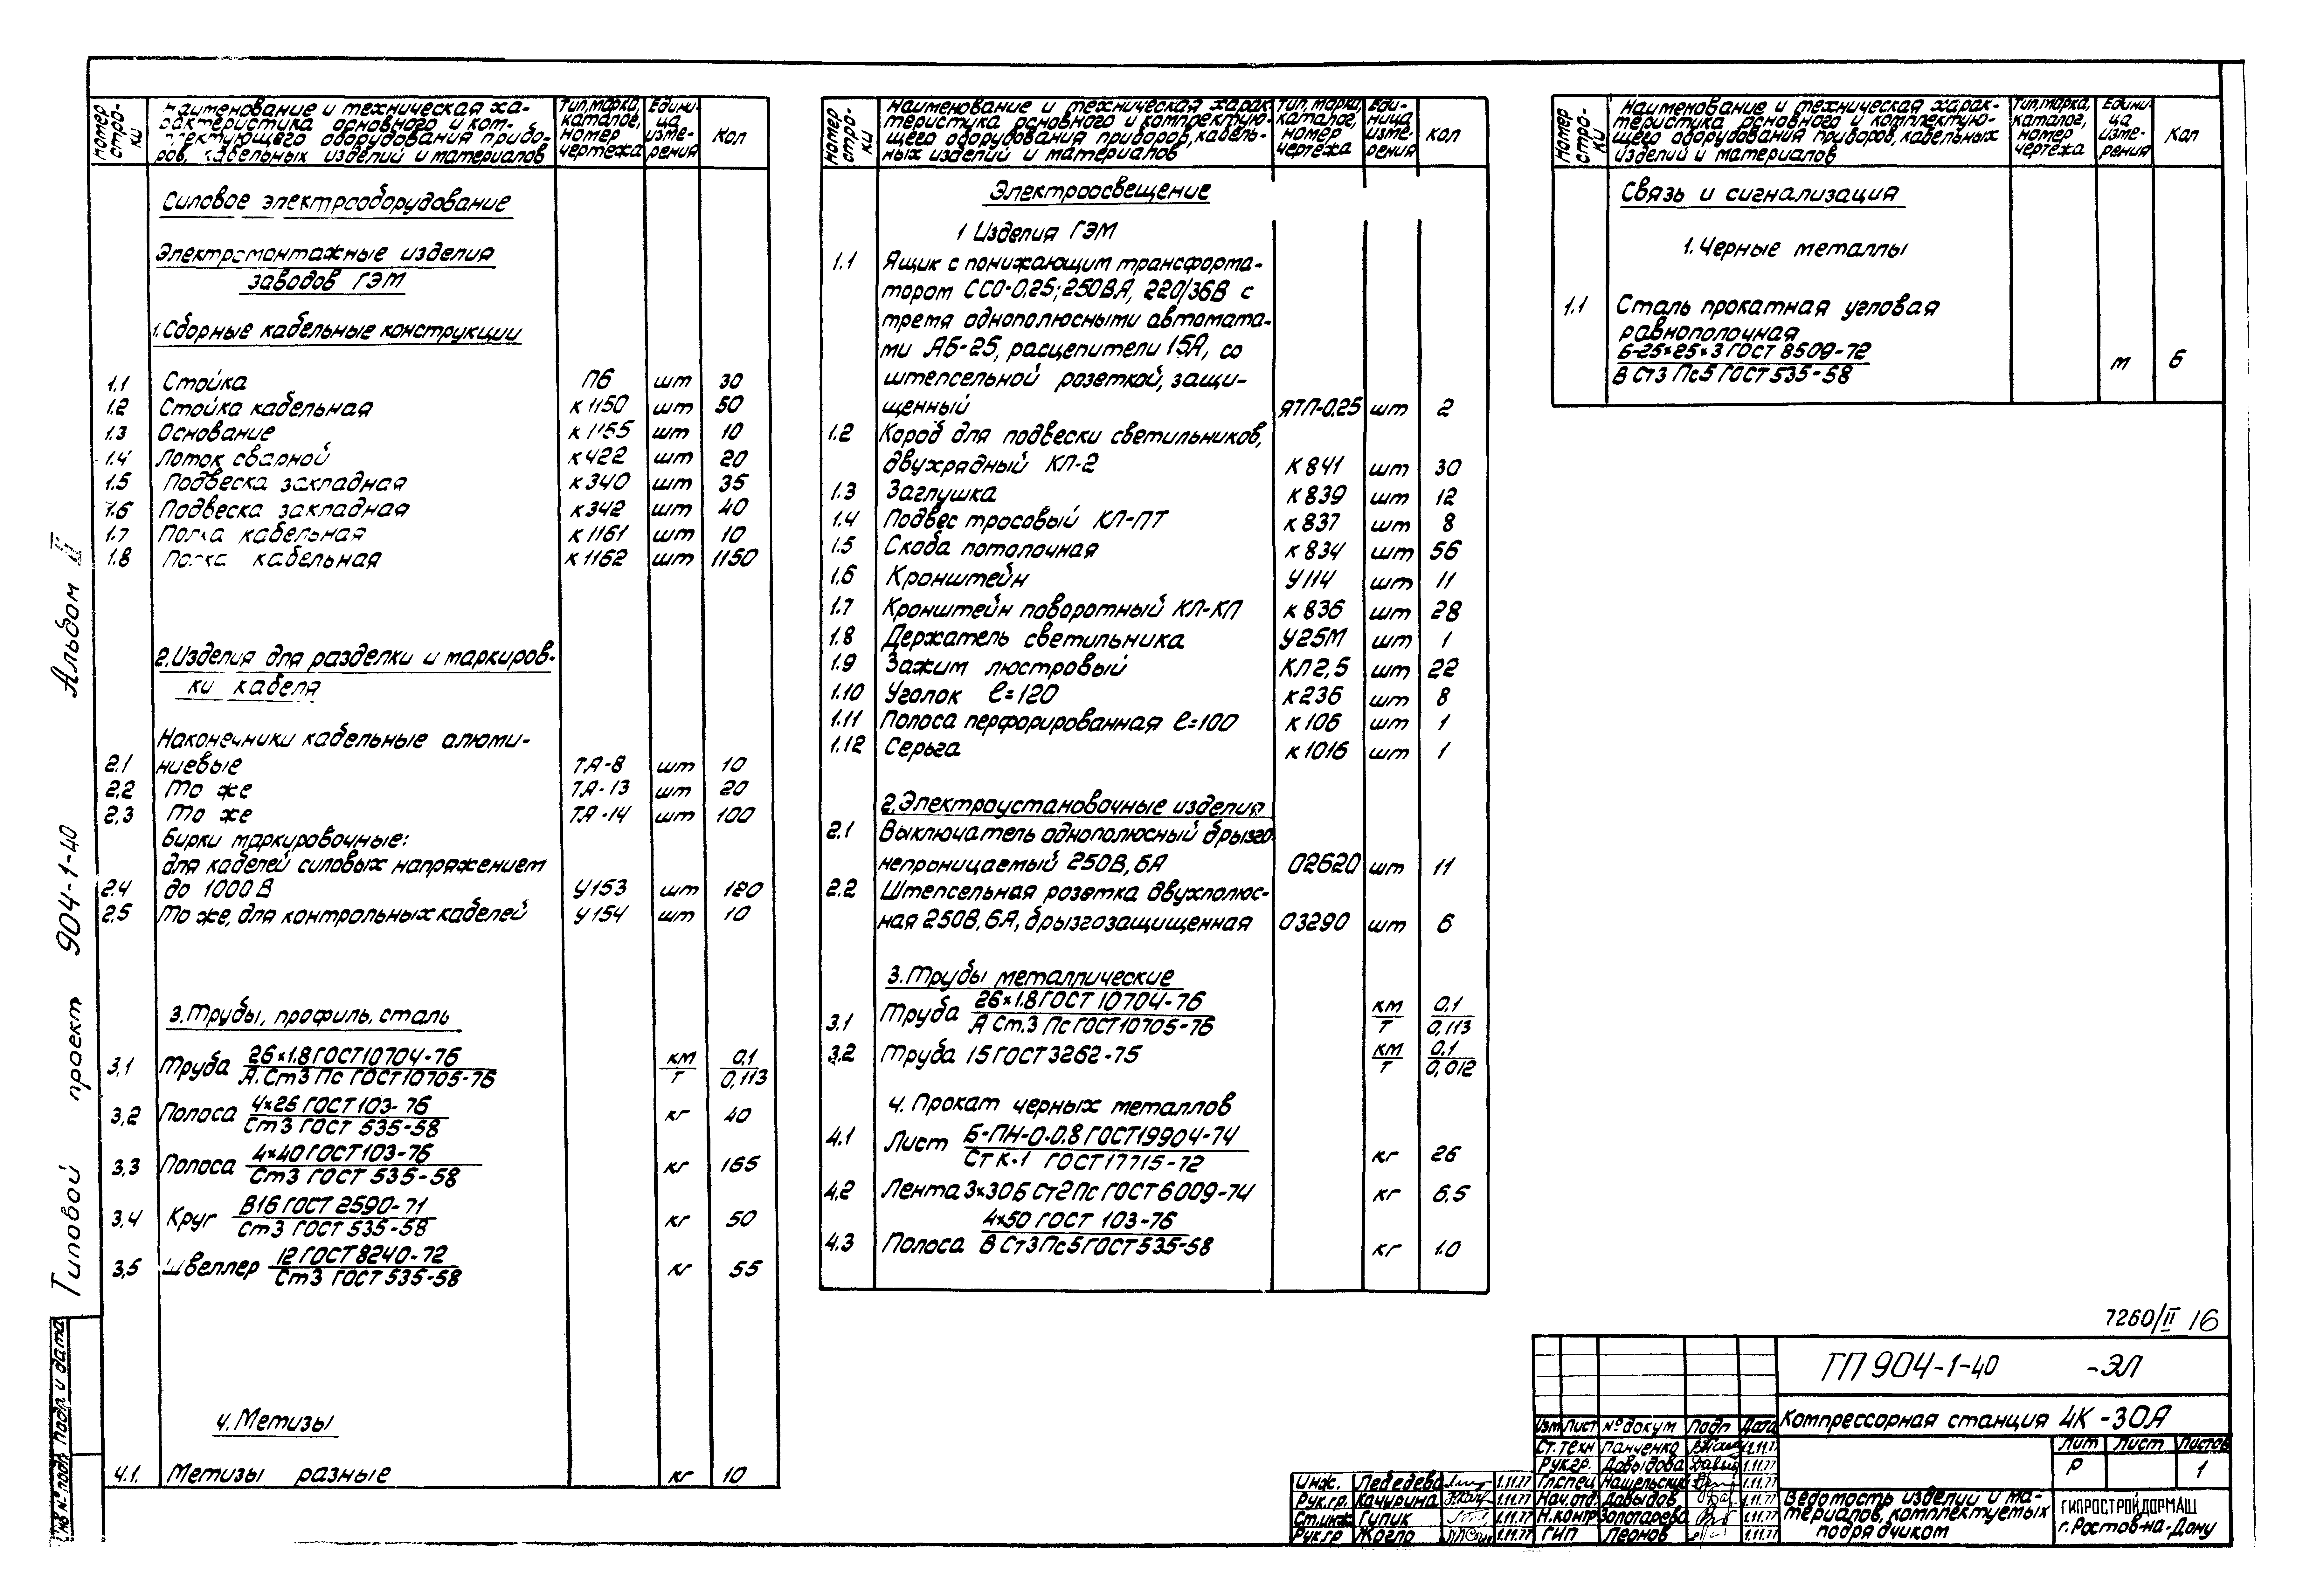 Номер строки
Наименование и техническая ха-
рактеристика основного и ком-
плектующего оборудования прибо-
ров, кабельных изделий и материалов
Тип, марка, каталог, номер чертежа
Едини-ца изме-рения
Кол
Силовое электрооборудование
Электромонтажные изделия
заводов ГЭМ
1. Сборные кабельные конструкции
1.1 Стойка П6 шт 30
1.2 Стойка кабельная К1150 шт 50
1.3 Основание К1155 шт 10
1.4 Лоток сварной К422 шт 20
1.5 Подвеска закладная К340 шт 35
1.6 Подвеска закладная К342 шт 40
1.7 Полка кабельная К1161 шт 10
1.8 Полка кабельная К1162 шт 1150
2. Изделия для разделки и маркиров-
ки кабеля
Наконечники кабельные алюми-
2.1 ниевые ТА-8 шт 10
2.2 То же ТА-13 шт 20
2.3 То же ТА-14 шт 100
Бирки маркировочные:
для кабелей силовых напряжением
2.4 до 1000 В У153 шт 120
2.5 То же, для контрольных кабелей У154 шт 10
3. Трубы, профиль, сталь
3.1 Труба 26×1.8 ГОСТ 10704-76 / А. Ст3 Пс ГОСТ 10705-76 км/т 0.1/0,113
3,2 Полоса 4×25 ГОСТ 103-76 / Ст3 ГОСТ 535-58 кг 40
3,3 Полоса 4×40 ГОСТ 103-76 / Ст3 ГОСТ 535-58 кг 165
3,4 Круг В16 ГОСТ 2590-71 / Ст3 ГОСТ 535-58 кг 50
3,5 Швеллер 12 ГОСТ 8240-72 / Ст3 ГОСТ 535-58 кг 55
4. Метизы
4.1. Метизы разные кг 10
Номер строки
Наименование и техническая харак-
теристика основного и комплектую-
щего оборудования приборов, кабель-
ных изделий и материалов
Тип, марка, каталог, номер чертежа
Еди-ница изме-рения
Кол
Электроосвещение
1 Изделия ГЭМ
1.1 Ящик с понижающим трансформа-
тором ССО-0.25; 250ВА, 220/36В с
тремя однополюсными автомата-
ми АБ-25, расцепители 15А, со
штепсельной розеткой, защи-
щенный ЯТП-0,25 шт 2
1.2 Короб для подвески светильников,
двухрядный КЛ-2 К841 шт 30
1.3 Заглушка К839 шт 12
1.4 Подвес тросовый КЛ-ПТ К837 шт 8
1.5 Скоба потолочная К834 шт 56
1.6 Кронштейн У114 шт 11
1.7 Кронштейн поворотный КЛ-КП К836 шт 28
1.8 Держатель светильника У25М шт 1
1.9 Зажим люстровый КЛ2,5 шт 22
1.10 Уголок ℓ=120 К236 шт 8
1.11 Полоса перфорированная ℓ=100 К106 шт 1
1.12 Серьга К1016 шт 1
2. Электроустановочные изделия
2.1 Выключатель однополюсный брызго
непроницаемый 250В, 6А 02620 шт 11
2.2 Штепсельная розетка двухполюс-
ная 250В, 6А, брызгозащищенная 03290 шт 6
3. Трубы металлические
3.1 Труба 26×1.8 ГОСТ 10704-76 / А Ст.3 Пс ГОСТ 10705-76 км/т 0.1/0,113
3.2 Труба 15 ГОСТ 3262-75 км/т 0.1/0,012
4. Прокат черных металлов
4.1 Лист Б-ПН-О-0.8 ГОСТ 19904-74 / Ст К-1 ГОСТ 17715-72 кг 26
4.2 Лента 3×30Б Ст2Пс ГОСТ 6009-74 кг 6.5
4.3 Полоса 4×50 ГОСТ 103-76 / В Ст3Пс5 ГОСТ 535-58 кг 1.0
Номер строки
Наименование и техническая харак-
теристика основного и комплектую-
щего оборудования приборов, кабельных
изделий и материалов
Тип, марка, каталог, номер чертежа
Едини-ца изме-рения
Кол
Связь и сигнализация
1. Черные металлы
1.1 Сталь прокатная угловая
равнополочная
Б-25×25×3 ГОСТ 8509-72 / В Ст3 Пс5 ГОСТ 535-58 м 6
Типовой проект 904-1-40 Альбом II
Инв № подл. Подп. и дата
7260/II 16
ТП 904-1-40 -ЭЛ
Компрессорная станция 4К-30А
Изм Лист № докум Подп Дата
Ст. техн Панченко 1.11.77
Рук.гр. Давыдова 1.11.77
Гл.спец 1.11.77
Нач.отд. Давыдов 1.11.77
Н.контр Золотарева 1.11.77
ГИП Леонов 1.11.77
Инж. Лебедева 1.11.77
Рук.гр. Качурина 1.11.77
Ст.инж Гупик 1.11.77
Рук.гр Жогло 1.11.77
Лит Лист Листов
Р 1
Ведомость изделий и ма-
териалов, комплектуемых
подрядчиком
ГИПРОСТРОЙДОРМАШ
г. Ростов-на-Дону